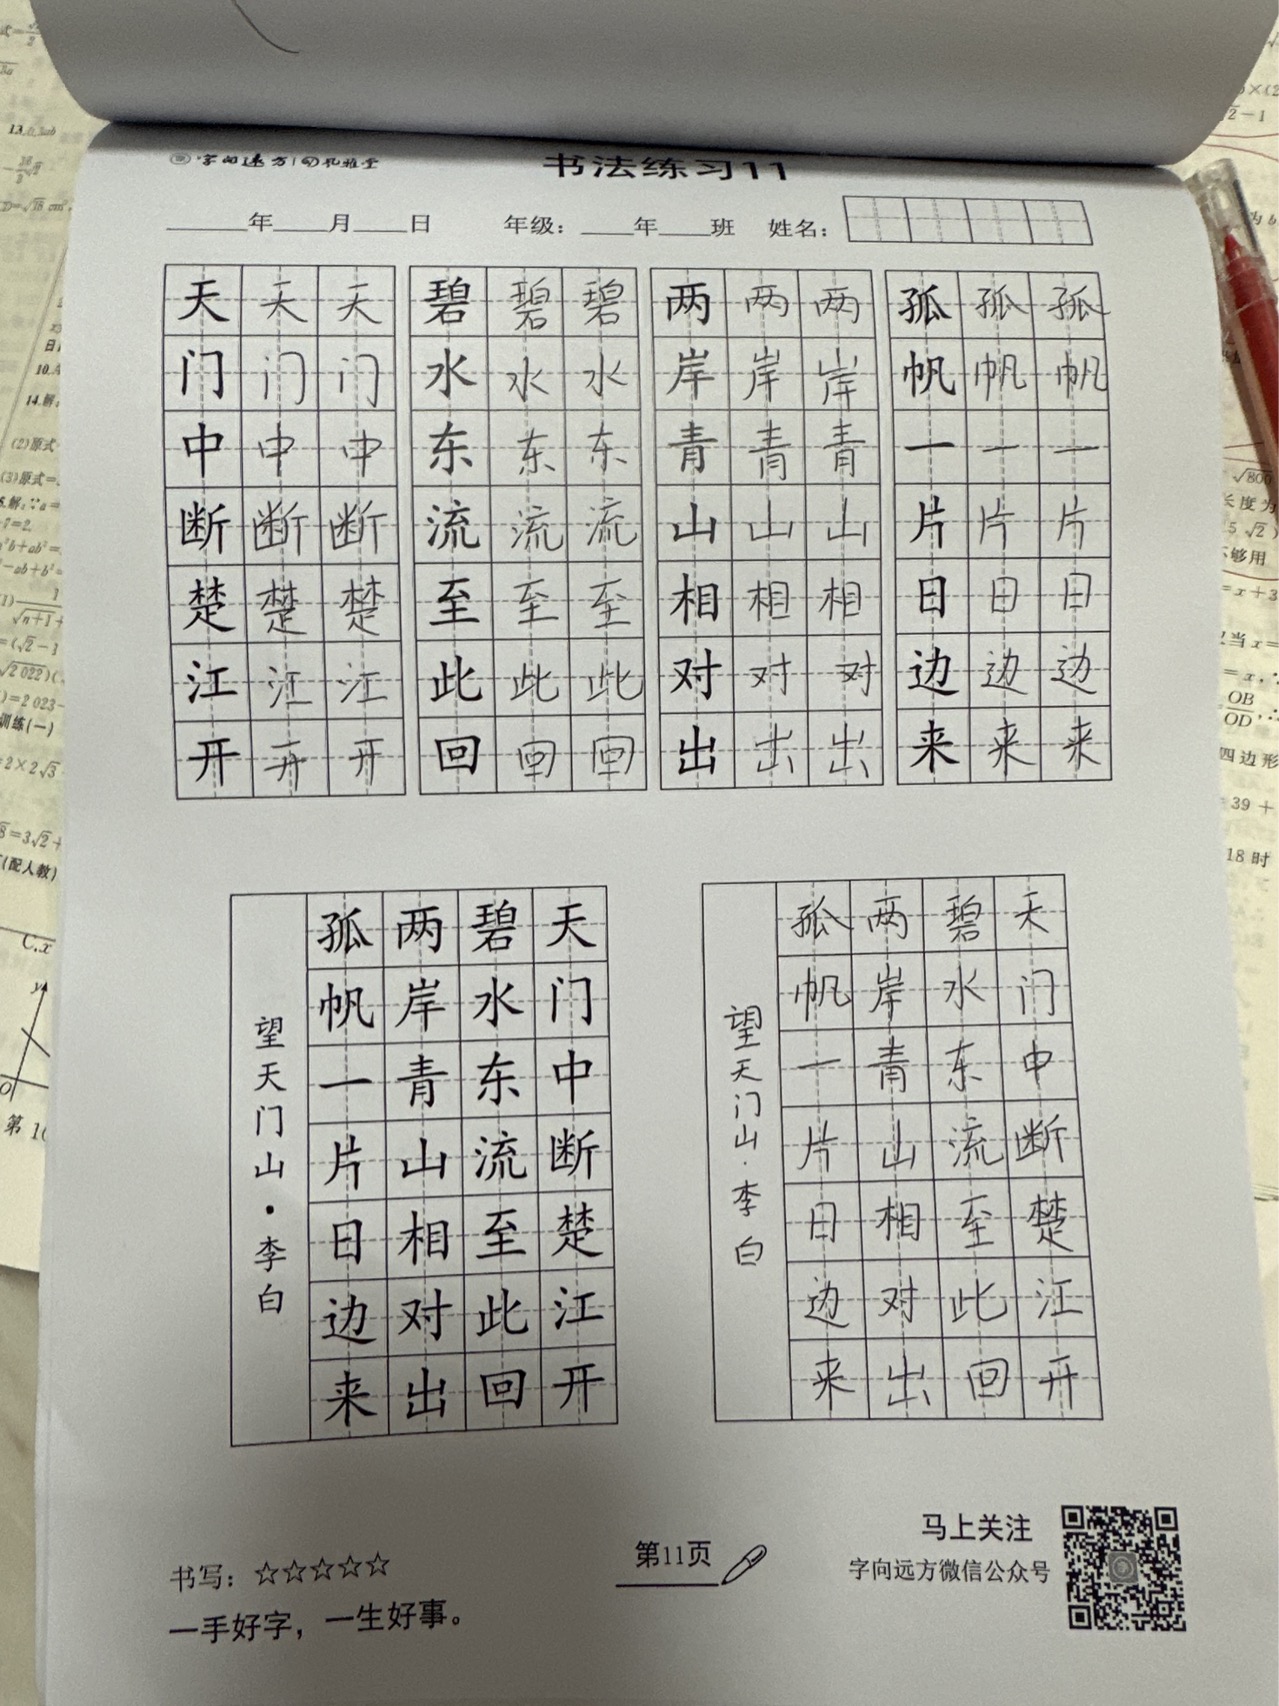 字向远方|句礼雅堂
书法练习11
____年____月____日 年级：____年____班 姓名：
天天天 碧碧碧 两两两 孤孤孤
门门门 水水水 岸岸岸 帆帆帆
中中中 东东东 青青青 一一一
断断断 流流流 山山山 片片片
楚楚楚 至至至 相相相 日日日
江江江 此此此 对对对 边边边
开开开 回回回 出出出 来来来
天门中断楚江开
碧水东流至此回
两岸青山相对出
孤帆一片日边来
望天门山·李白
天门中断楚江开
碧水东流至此回
两岸青山相对出
孤帆一片日边来
望天门山·李白
书写：☆☆☆☆☆
一手好字，一生好事。
第11页
马上关注
字向远方微信公众号
13.
10.
14.解：
(2)原式
(3)原式=
训练(一)
(配人教)
C.x
y
O
第10
长度为
不够用
OB
OD
四边形
39+
18时